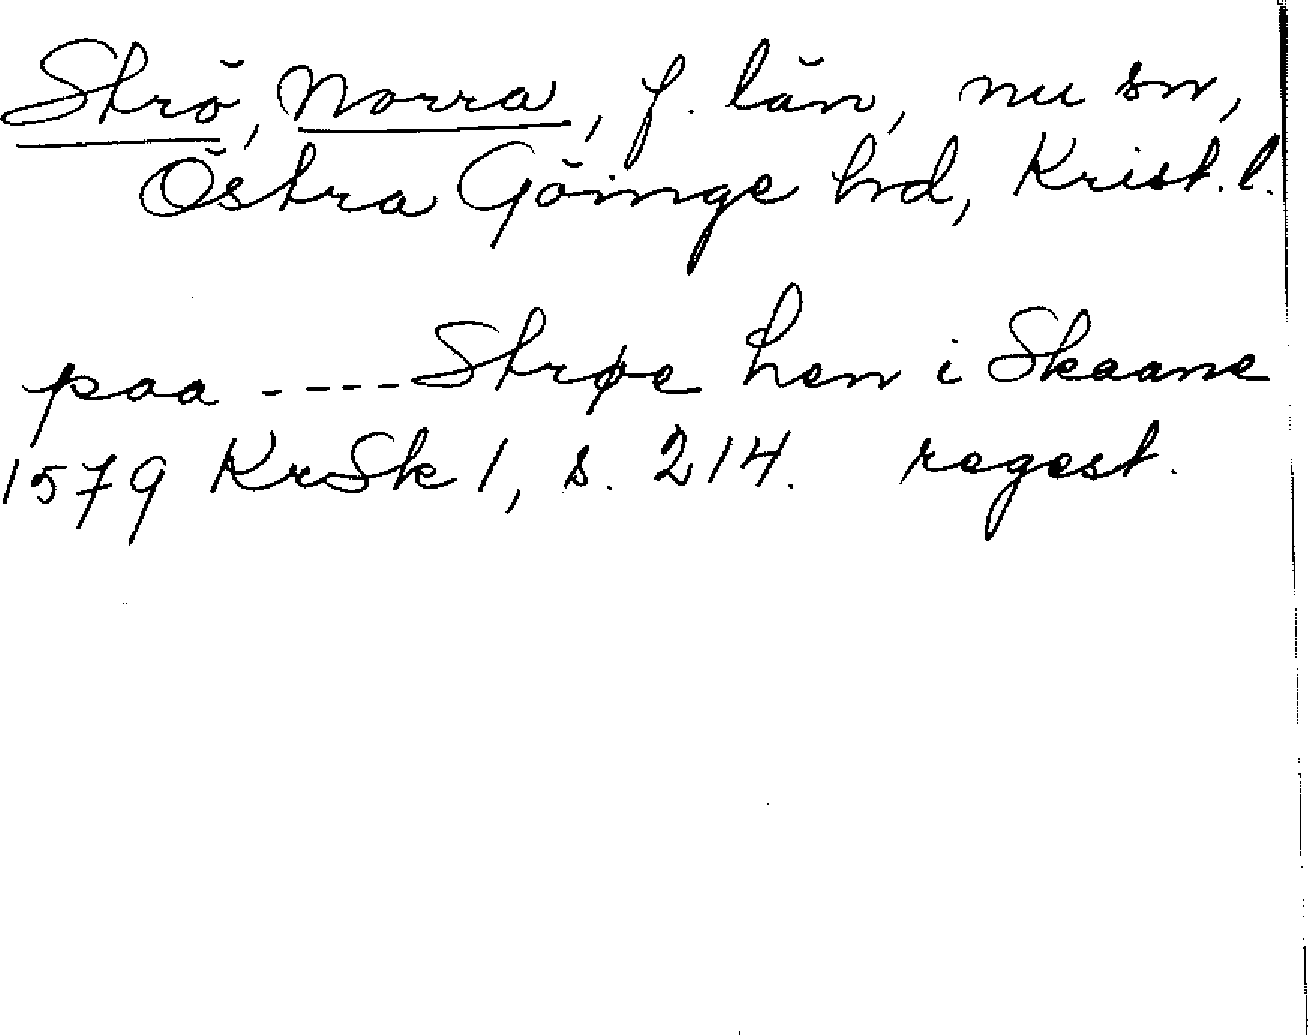 Strö, Norra, f. län, nu sn,
Östra Göinge hd, Krist. l.
paa ---- Strøe len i Skaane
1579 KrSk 1, s. 214. regest.